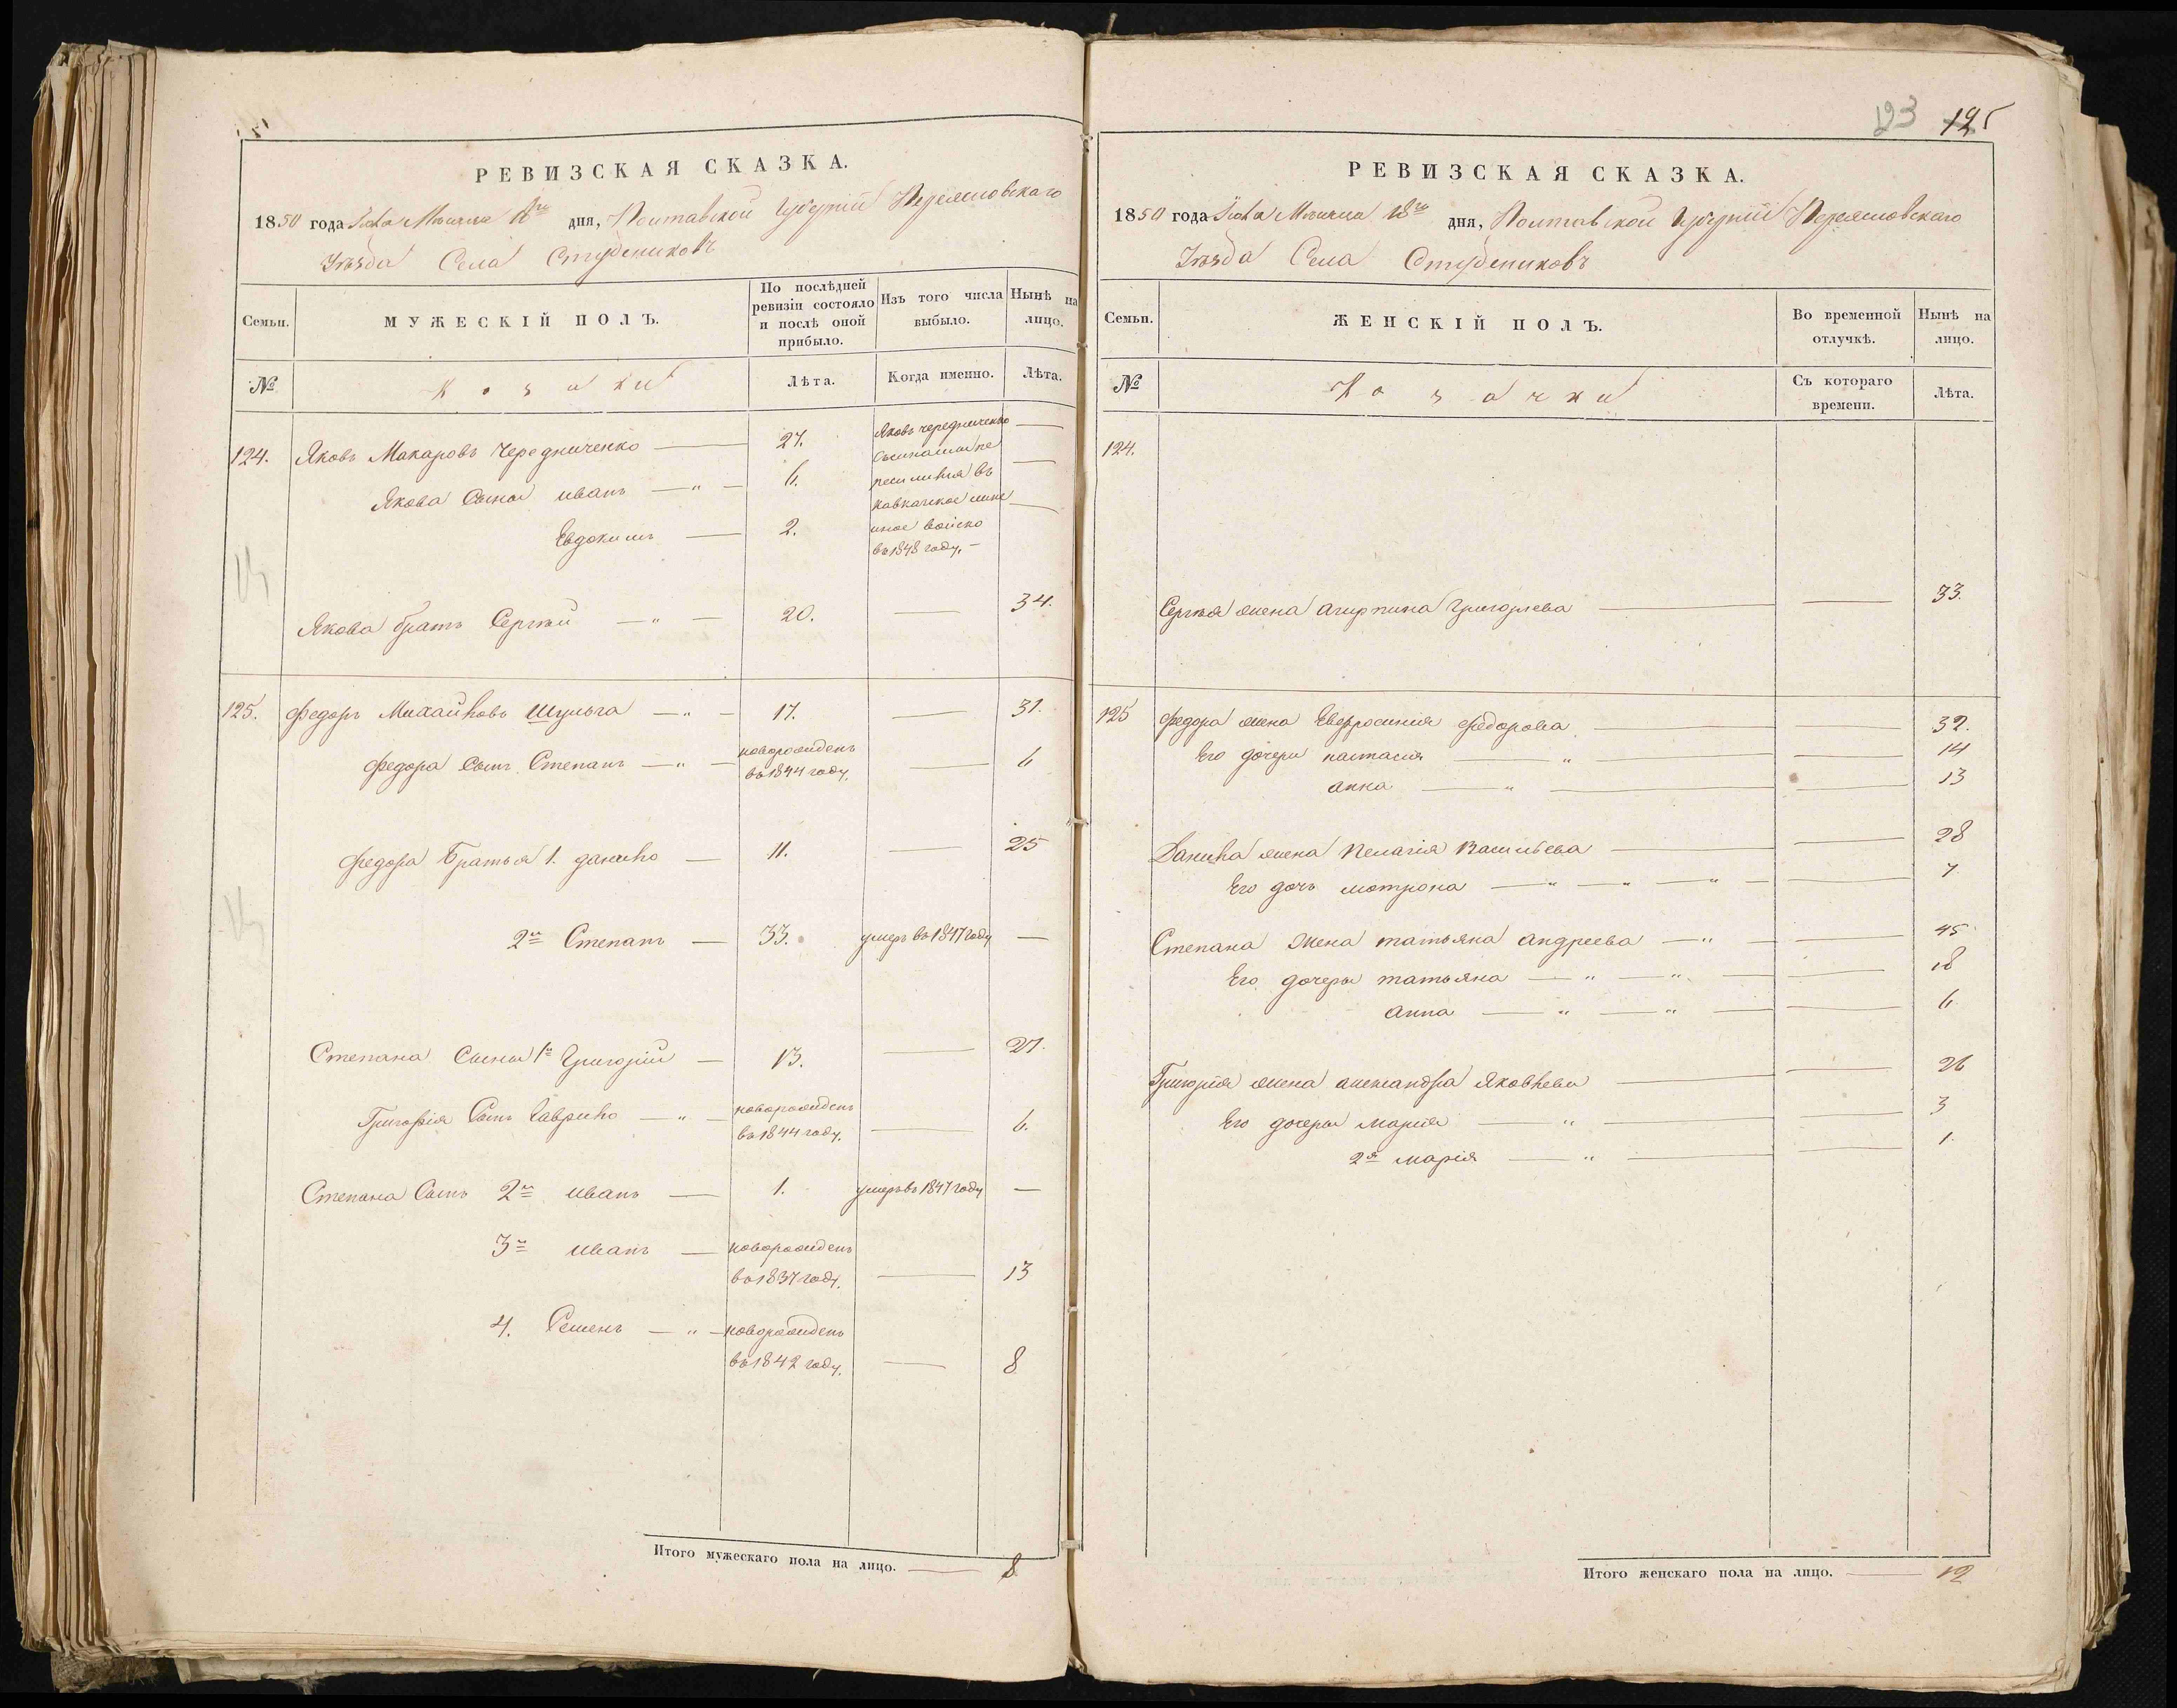 РЕВИЗСКАЯ СКАЗКА.
1850 года Іюля Мѣсяца 18го дня, Полтавской Губерніи Переяславскаго
Уѣзда Села Студениковъ
Семьи.
МУЖЕСКІЙ ПОЛЪ.
По послѣдней ревизіи состояло и послѣ оной прибыло.
Изъ того числа выбыло.
Нынѣ на лицо.
№
Козаки
Лѣта.
Когда именно.
Лѣта.
124. Яковъ Макаровъ Чередниченко — 27. Яковъ чередниченко —
съ синами пе
Якова Сыны иванъ — " — 6. реселился въ —
Кавказское лине
Евдокимъ — 2. иное войско —
въ 1848 году, —
Якова братъ Сергѣй — " — 20. — 34.
125. Федоръ Михайловъ Шульга — " — 17. — 31.
Федора Сынъ Степанъ — " — новорожденъ
въ 1844 году. — 6
Федора Братья 1. данило — 11. — 25
2й Степанъ — 33. умеръ въ 1847 году —
Степана Сыны 1й Григорій — 13. — 27.
Григорія Сынъ Гаврило — " — новорожденъ
въ 1844 году. — 6.
Степана Сынъ 2й иванъ — 1. умеръ въ 1847 году —
3й иванъ — новорожденъ
въ 1837 году. — 13
4. Семенъ — " — новорожденъ
въ 1842 году. — 8
Итого мужескаго пола на лицо. — 8
123 125
РЕВИЗСКАЯ СКАЗКА.
1850 года Іюля Мѣсяца 18го дня, Полтавской Губерніи Переяславскаго
Уѣзда Села Студениковъ
Семьи.
ЖЕНСКІЙ ПОЛЪ.
Во временной отлучкѣ.
Нынѣ на лицо.
№
Козачки
Съ котораго времени.
Лѣта.
124.
Сергѣя жена Агирпина Григорьева — — 33.
125 Федора жена Евфросинія Федорова — — 32.
Его дочери настасія — " — — 14
анна — " — — 13
Данила жена Пелагія Васильева — — 28
Его дочь мотрона — " — " — " — — 7
Степана Жена татьяна андреева — " — — 45
Его дочери татьяна — " — " — — 18
анна — " — " — — 6
Григорія жена александра Яковлева — — 26
Его дочери марія — " — — 3
2я марія — " — — 1.
Итого женскаго пола на лицо. — 12